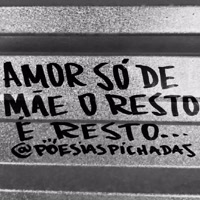 AMOR SÓ DE
MÃE O RESTO
É RESTO...
@PÖESIASPICHADAS